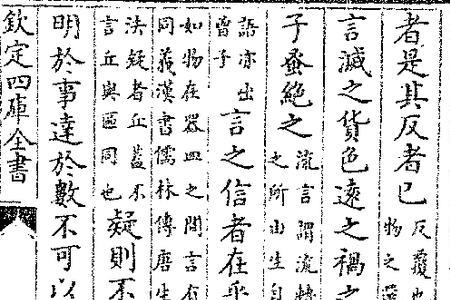 者是其反者已反覆也
物之
言滅之貨色遠之禍之
子蚤絶之流言謂流轉
之所由生自
語亦出
曾子
言之信者在乎
如物在器皿之間言有
同義漢書儒林傳唐生
決疑者丘蓋不
言丘與區同也
疑則不
明於事達於數不可以
欽定四庫全書